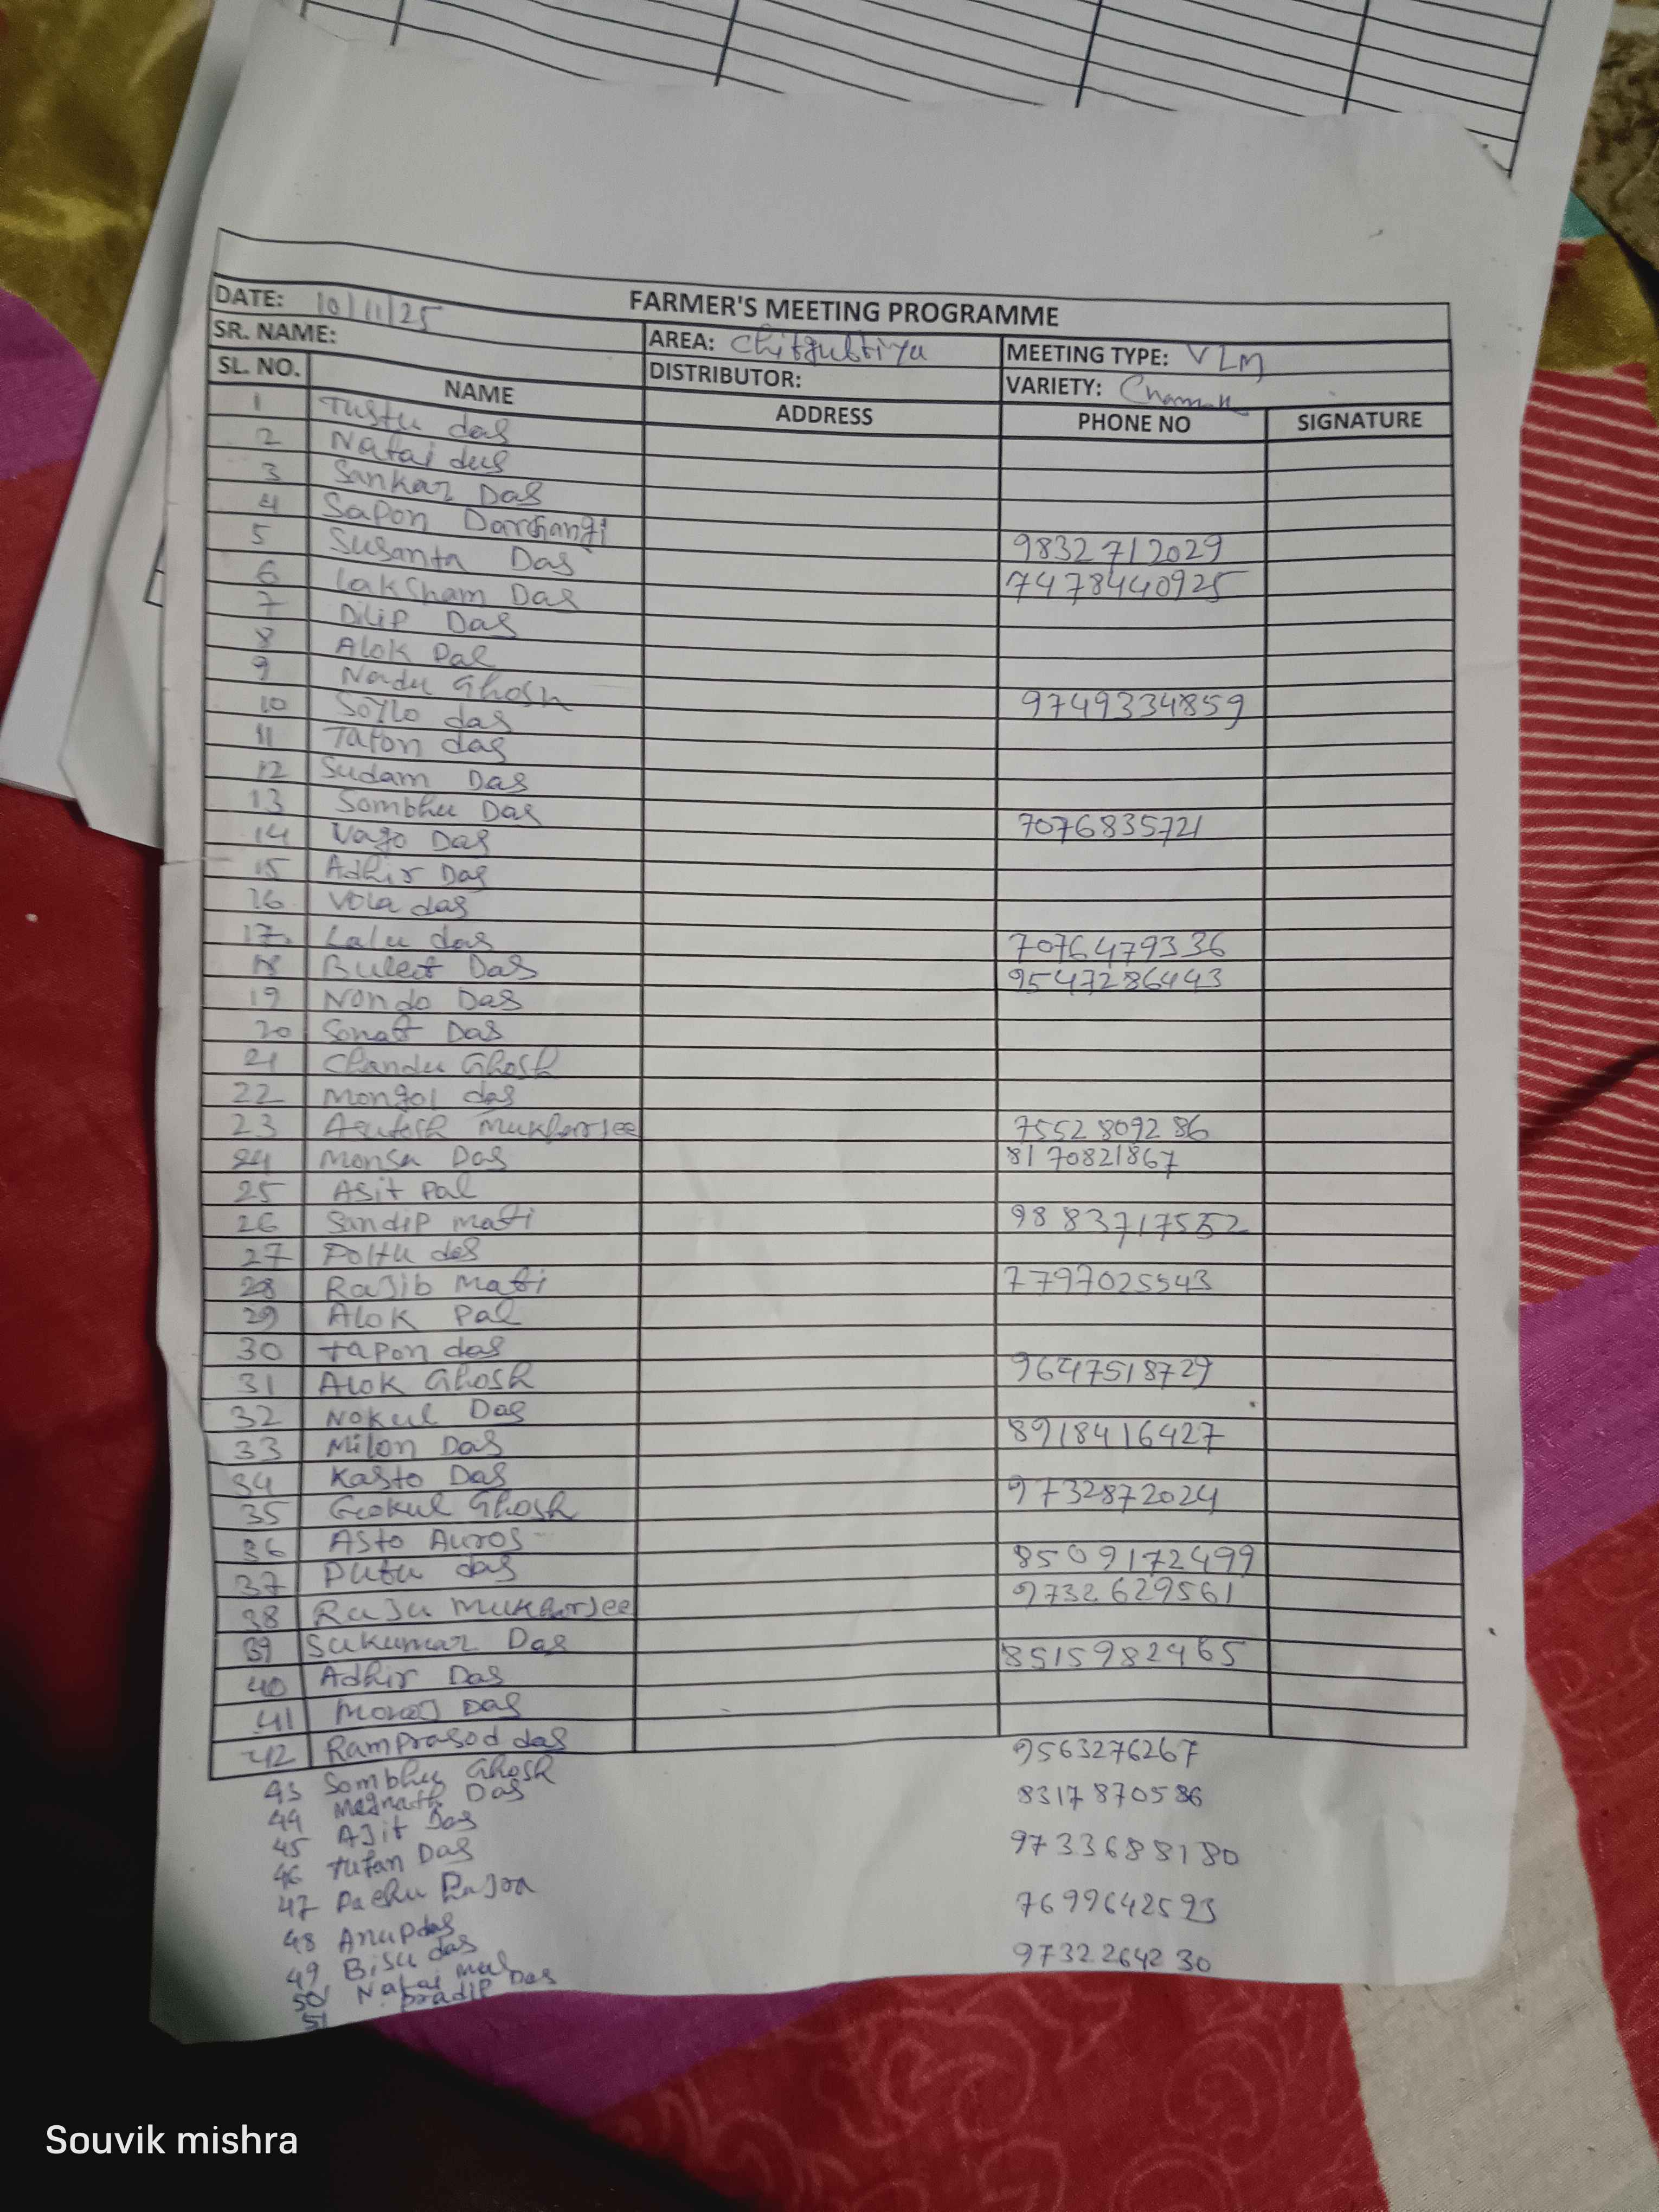 FARMER'S MEETING PROGRAMME
DATE: 10/11/25
SR. NAME: AREA: Chitgubtiya MEETING TYPE: VLM
DISTRIBUTOR: VARIETY:
SL. NO. NAME ADDRESS PHONE NO SIGNATURE
1 Tustu das
2 Natai das
3 Sankar Das
4 Sapon 9832712029
5 Susanta Das 7478440925
6 Laksham Das
7 Dilip Das
8 Alok Pal
9 Nadu Ghosh 9749334859
10 das
11 Tapon das
12 Sudam Das
13 Sombhu Das 7076835721
14 Vago Das
15 Adhir Das
16 Vola das
17. Lalu das 7076479336
18 Bulet Das 9547286443
19 Nondo Das
20 Sonat Das
21 Chandu Ghosh
22 Mongol das
23 Asutosh Mukharjee 7552809286
24 Monsa Das 8170821867
25 Asit Pal
26 Sandip Mati 9883717552
27 Poltu das
28 Rajib Mati 7797025543
29 Alok Pal
30 tapon das
31 Alok Ghosh 9647518729
32 Nokul Das
33 Milon Das 8918416427
34 Kasto Das
35 Gokul Ghosh 9732872024
36 Asto Auros
37 Putu das 8509172499
38 Raju Mukharjee 9732629561
39 Sukumar Das
40 Adhir Das 8515982465
41 Monoj Das
42 Ramprasod das
43 Sombhu Ghosh 9563276267
44 Megnath Das 8317870586
45 Ajit Das
46 Tufan Das 9733688180
47 Pachu
48 Anup das 7699642593
49 Bisu das
50 Natai mal 9732264230
51 Pradip Das
Souvik mishra